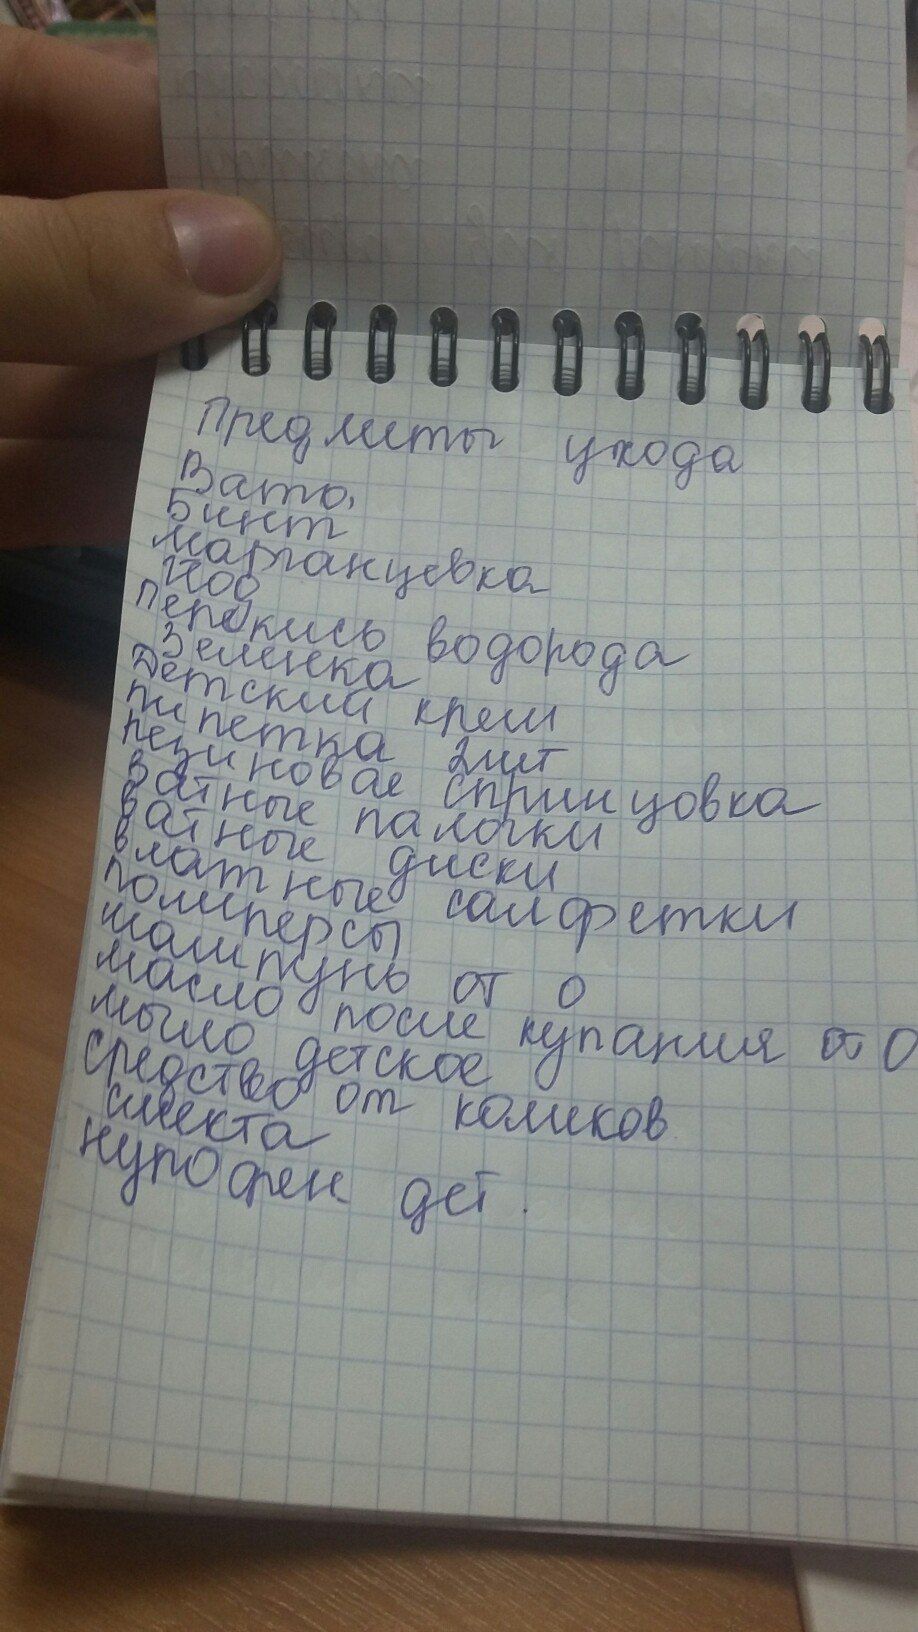 Предметы ухода
Вата
Бинт
марганцевка
Йод
перекись водорода
Зеленка
Детский крем
пипетка 2шт
резиновае спринцовка
Ватные палочки
ватные диски
влатные салфетки
полмперсы
шампунь от 0
масло после купания от 0
мыло детское
средство от коликов
смекта
нурофен дет.